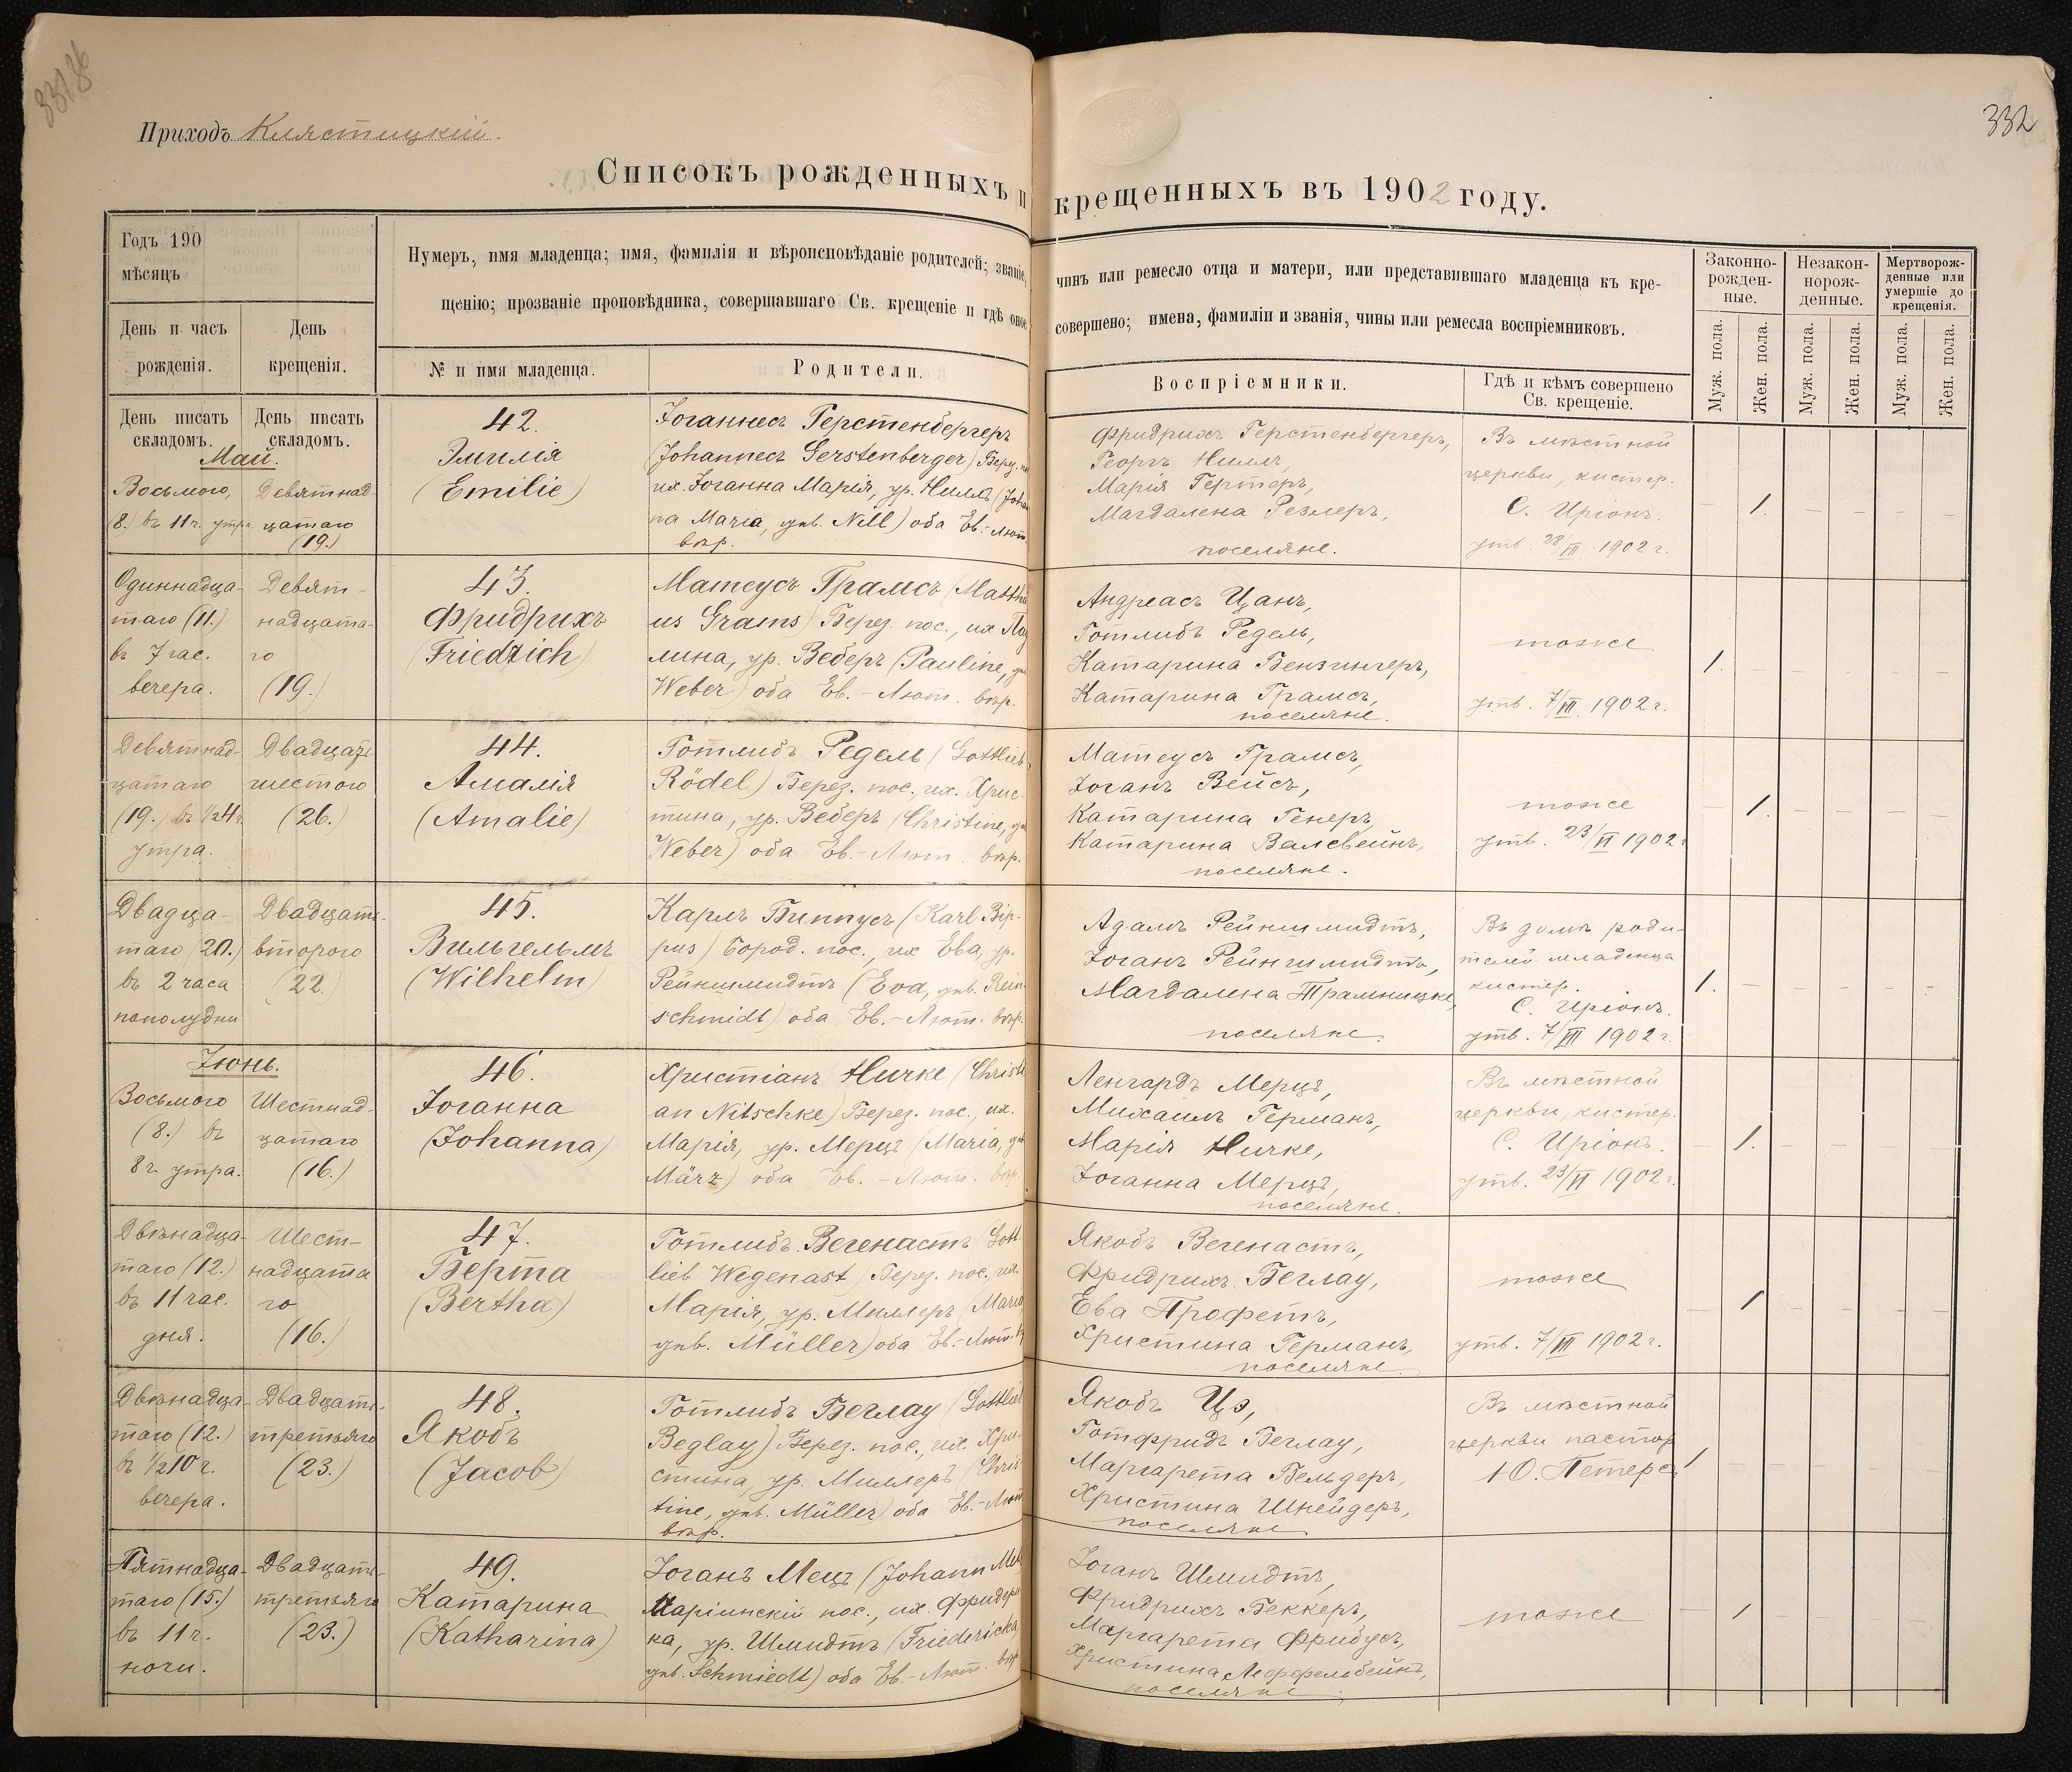 331 об
332
Приходъ Клястицкій.
Списокъ рожденныхъ и крещенныхъ въ 1902 году.
Годъ 190
мѣсяцъ
День и часъ
рожденія.
День
крещенія.
Нумеръ, имя младенца; имя, фамилія и вѣроисповѣданіе родителей; званіе, чинъ или ремесло отца и матери, или представившаго младенца къ кре-
щенію; прозваніе проповѣдника, совершавшаго Св. крещеніе и гдѣ оное совершено; имена, фамиліи и званія, чины или ремесла воспріемниковъ.
№ и имя младенца.
Родители.
Воспріемники.
Гдѣ и кѣмъ совершено
Св. крещеніе.
Законно-
рожден-
ные.
Незакон-
норож-
денные.
Мертворож-
денные или
умершіе до
крещенія.
Муж. пола.
Жен. пола.
Муж. пола.
Жен. пола.
Муж. пола.
Жен. пола.
День писать
складомъ.
День писать
складомъ.
Май.
Восьмого,
(8.) въ 11 ч. утра.
Девятнад
цатаго
(19.)
42.
Эмилія
(Emilie)
Іоганнесъ Герстенбергеръ
(Johannes Gerstenberger) Берез. по
их. Іоганна Марія, ур. Нилль (Johan
na Maria, ур. Nill) оба Ев.-Лют.
вѣр.
Фридрихъ Герстенбергеръ,
Георгъ Нилль,
Марія Гертеръ,
Магдалена Реслеръ,
поселяне.
Въ мѣстной
церкви, кистер.
С. Иріонъ.
утв. 28/III 1902 г.
1.
Одиннадца-
таго (11.)
въ 7 час.
вечера.
Девят-
надцата-
го
(19.)
43.
Фридрихъ
(Friedrich)
Матеусъ Грамсъ (Matthä
us Grams) Берез. пос., их Пау
лина, ур. Веберъ (Pauline, ур
Weber) оба Ев.-Лют. вѣр.
Андреасъ Цанъ,
Готлибъ Редель,
Катарина Бензингеръ,
Катарина Грамсъ,
поселяне.
тоже
утв. 7/III 1902 г.
1.
Девятнад-
цатаго
(19.) въ 1/2 4 ч.
утра.
Двадцать
шестого
(26.)
44.
Амалія
(Amalie)
Готлибъ Редель (Gottlieb
Rödel) Берез. пос., их. Хрис-
тина, ур. Веберъ (Christine, ур
Weber) оба Ев.-Лют. вѣр.
Матеусъ Грамсъ,
Іоганъ Вейсъ,
Катарина Генеръ,
Катарина Валевейнъ,
поселяне.
тоже
утв. 23/VI 1902 г
1.
Двадца-
таго (20.)
въ 2 часа
пополудни
Двадцать-
второго
(22.)
45.
Вильгельмъ
(Wilhelm)
Карлъ Биппусъ (Karl Bip-
pus) Бород. пос., их Ева, ур.
Рейншмидтъ (Eva, ур. Rein-
schmidt) оба Ев.-Лют. вѣр.
Адамъ Рейншмидтъ,
Іоганъ Рейншмидтъ,
Магдалена Трамницке,
поселяне.
Въ домѣ роди-
телей младенца
кистер.
С. Иріонъ.
утв. 7/III 1902 г.
1.
Іюнь.
Восьмого
(8.) въ
8 ч. утра.
Шестнад-
цатаго
(16.)
46.
Іоганна
(Johanna)
Христіанъ Ничке (Christi
an Nitschke) Берез. пос., их.
Марія, ур. Мерцъ (Maria, ур
März) оба Ев.-Лют. вѣр.
Ленгардъ Мерцъ,
Михаилъ Германъ,
Марія Ничке,
Іоганна Мерцъ,
поселяне.
Въ мѣстной
церкви, кистер.
С. Иріонъ.
утв. 23/VI 1902 г.
1.
Двѣнадца-
таго (12.)
въ 11 час.
дня.
Шест-
надцата
го
(16.)
47.
Берта
(Bertha)
Готлибъ Вегенастъ (Gott
lieb Wegenast) Берез. пос., их.
Марія, ур. Миллеръ (Maria
урв. Müller) оба Ев.-Лют. в
Якобъ Вегенастъ,
Фридрихъ Беглау,
Ева Профетъ,
Христина Германъ,
поселяне
тоже
утв. 7/III 1902 г.
1
Двѣнадца-
таго (12.)
въ 1/2 10 ч.
вечера.
Двадцать-
третьяго
(23.)
48.
Якобъ
(Jacob)
Готлибъ Беглау (Gottlieb
Beglau) Берез. пос., их. Хри-
стина, ур. Миллеръ (Chris
tine, урв. Müller) оба Ев.-Лют
вѣр.
Якобъ Цэ,
Готфридъ Беглау,
Маргарета Вельдеръ,
Христина Шнейдеръ,
поселяне
Въ мѣстной
церкви пастор
Ю. Петерсъ
1
Пятнадца-
таго (15.)
въ 11 ч.
ночи.
Двадцать-
третьяго
(23.)
49.
Катарина
(Katharina)
Іоганъ Мецъ (Johann Me
Маріинскій пос., их. Фридери
ка, ур. Шмидтъ (Friedericka
урв. Schmiedt) оба Ев.-Лют. вѣр
Іоганъ Шмидтъ,
Фридрихъ Беккеръ,
Маргарета Фрибусъ,
Христина Леффельбейнъ,
поселяне
тоже
1